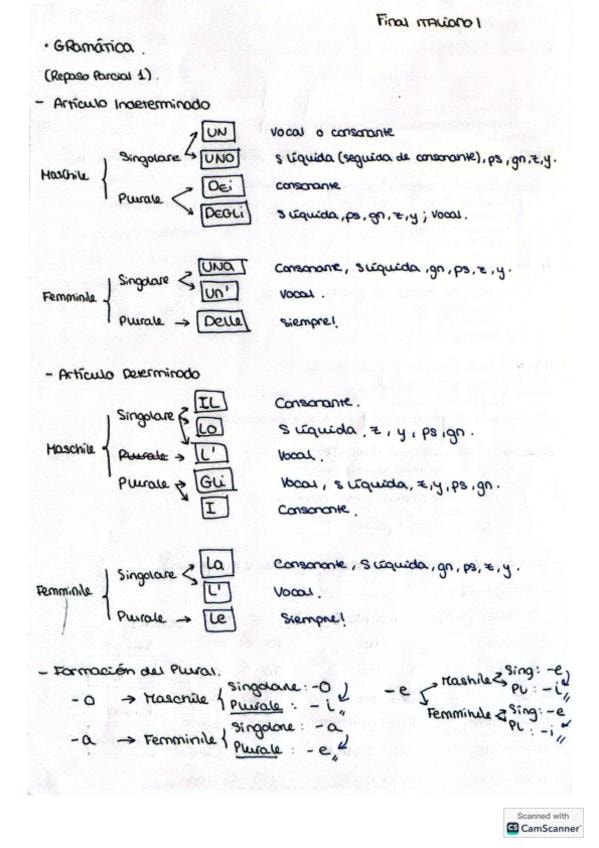 Final ITALIANO 1
• GRamática.
(Repaso Parcial 1).
- Artículo Indeterminado
Maschile
Singolare
UN vocal o consonante
UNO s líquida (seguida de consonante), ps, gn, z, y.
Plurale
Dei consonante
DEGLI s líquida, ps, gn, z, y; vocal.
Femminile
Singolare
UNA Consonante, s líquida, gn, ps, z, y.
Un' vocal.
Plurale → Delle siempre!
- Artículo Determinado
Maschile
Singolare
IL Consonante.
LO s líquida, z, y, ps, gn.
Plurale → L' Vocal.
Plurale
GLi Vocal, s líquida, z, y, ps, gn.
I Consonante.
Femminile
Singolare
La Consonante, s líquida, gn, ps, z, y.
L' Vocal.
Plurale → Le Siempre!
- Formación del Plural.
-o → Maschile
Singolare: -o
Plurale: -i
-a → Femminile
Singolare: -a
Plurale: -e
-e
Mashile
Sing: -e
PL: -i
Femminile
Sing: -e
PL: -i
Scanned with
CS CamScanner